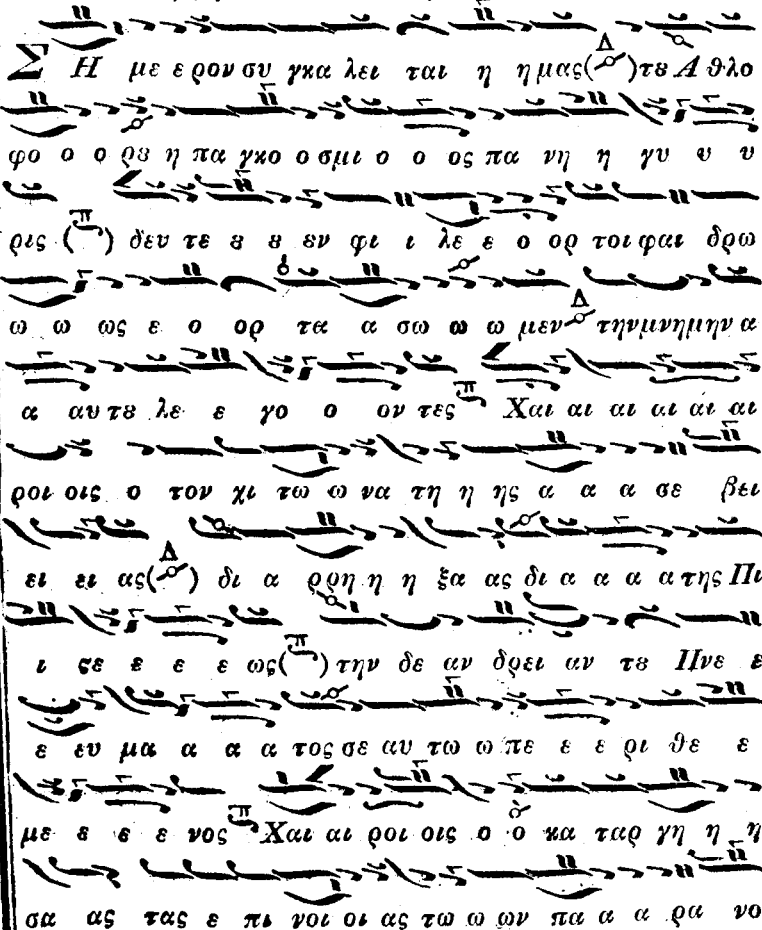 Σ Η με ε ρον συ γκα λει ται η η μας (Δ) τȣ Α θλο
φο ο ο ρȣ η πα γκο ο σμι ο ο ος πα νη η γυ υ υ
ρις (π) δευ τε ȣ ȣ εν φι ι λε ε ο ορ τοι φαι δρω
ω ω ως ε ο ορ τα α σω ω ω μεν Δ την μνημην α
α αυ τȣ λε ε γο ο ον τες π Χαι αι αι αι αι αι
ροι οις ο τον χι τω ω να τη η ης α α α σε βει
ει ει ας (Δ) δι α ρρη η η ξα ας δι α α α α της Πι
ι ςε ε ε ε ως (π) την δε αν δρει αν τȣ Πνε ε
ε ευ μα α α α τος σε αυ τω ω πε ε ε ρι θε ε
με ε ε ε νος π Χαι αι ροι οις ο ο κα ταρ γη η η
σα ας τας ε πι νοι οι ας τω ω ων πα α α ρα νο